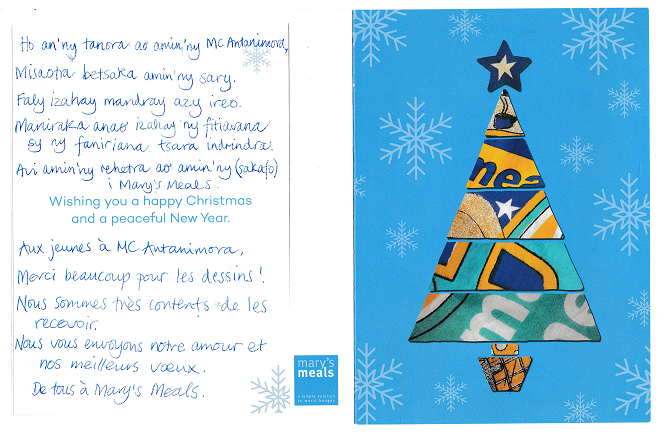 Ho an'ny tanora ao amin'ny MC Antanimora,
Misaotra betsaka amin'ny sary.
Faly izahay mandray azy ireo.
Maniraka anao izahay ny fitiavana
sy ny faniriana tsara indrindra.
Avi amin'ny rehetra ao amin'ny (sakafo)
i Mary's Meals.
Wishing you a happy Christmas
and a peaceful New Year.
Aux jeunes à MC Antanimora,
Merci beaucoup pour les dessins !
Nous sommes très contents de les
recevoir.
Nous vous envoyons notre amour et
nos meilleurs vœux.
De tous à Mary's Meals.
mary's
meals
a simple solution
to world hunger
me
me